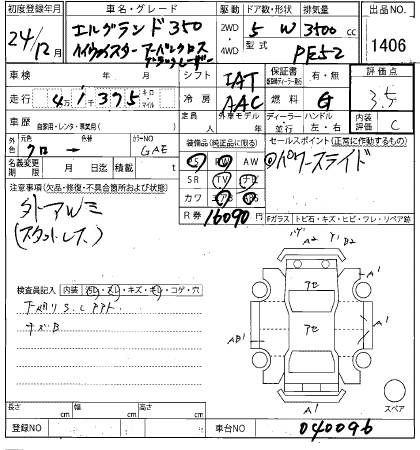 初度登録年月 車名・グレード 駆動 ドア数・形状 排気量 出品NO.
24年/12月 エルグランド350 2WD 4WD 5 W 3500cc
ハイウェイスター アーバンクロム 型式 PE52 1406
車検 年 月 シフト IAT 保証書 有・無 評価点
走行 4万1千375 キロ マイル 冷房 AAC 燃料 G 3.5
車歴 自家用・レンタ・事業用( ) 定員 人 外車モデル 年 ディーラー 並行 ハンドル 左・右 内装評価 C
外色 元色 クロ → 色替 カラーNO GAE 装備品(純正品に限る) セールスポイント(正常に作動するもの)
PS PW AW
パワースライド
名義変更期限 月 日迄 積載 t SR TV ナビ
注意事項(欠品・修復・不具合箇所および状態) カワ エアB ABS
外アWミ R券 16090円
(スタットレス) Fガラス トビ石・キズ・ヒビ・ワレ・リペア跡
A2 B2
A1
アセ
検査員記入 内装 汚れ・スレ・キズ・キレ・コゲ・穴
キズB
AB1 アセ A1
スペア
長さ cm 幅 cm 高さ cm A1
登録NO 車台NO 040096